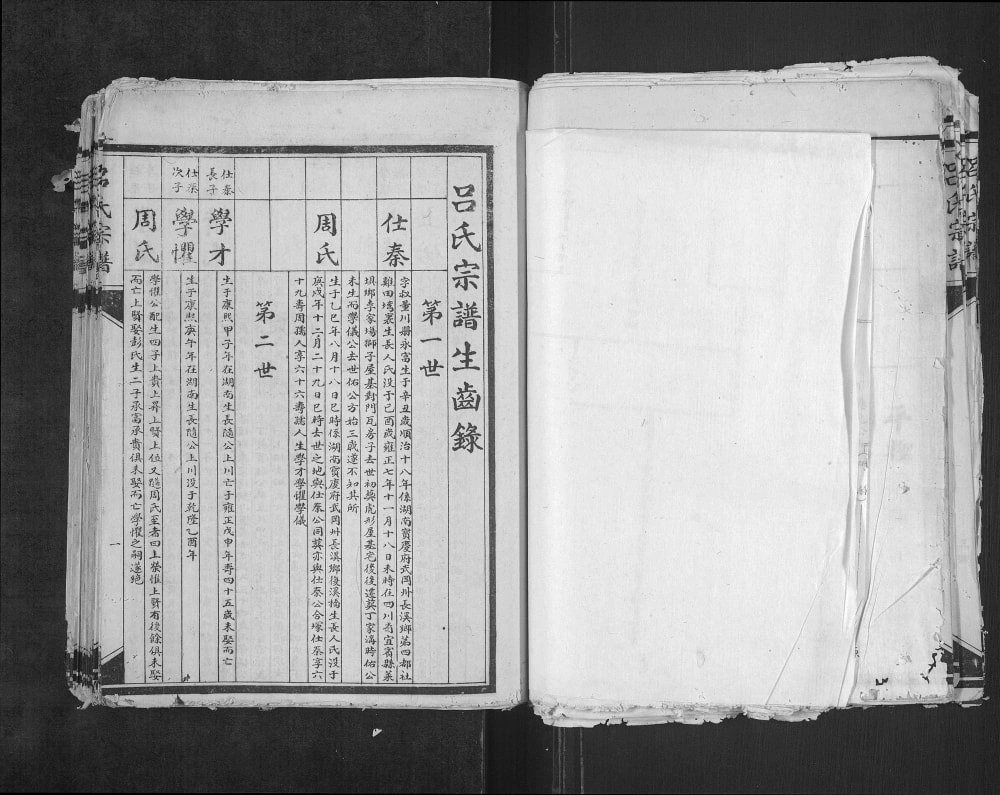 呂氏宗譜生齒錄
第一世
仕秦
字叔量川冊永富生于辛丑歲順治十八年係湖南寶慶府武岡州長溪鄉第四都社
雞田塆裏生長人氏没于己酉歲雍正七年十一月十八日未時在四川省宜賓縣萊
垻鄉李家場獅子屋基對門瓦房子去世初𦵏虎形屋基宅後後遷𦵏丁家溝時佑公
未生而學儀公去世佑公方始三歲遂不知其所
周氏
生于乙巳年八月十八日巳時係湖南寶慶府武岡州長溪鄉後溪橋生長人氏没于
庚戌年十二月二十九日巳時去世之地與仕秦公同𦵏亦與仕秦公合塚仕秦享六
十九壽周孺人享六十六壽孺人生學才學懼學儀
第二世
仕秦長子
學才
生于康熙甲子年在湖南生長隨公上川亡于雍正戊申年壽四十五歲未娶而亡
仕秦次子
學懼
生于康熙庚午年在湖南生長隨公上川没于乾隆乙酉年
周氏
學懼公配生四子上貴上昇上賢上位又隨周氏至者曰上榮惟上賢有後餘俱未娶
而亡上賢娶彭氏生二子承富承貴俱未娶而亡學懼之嗣遂絶
一
呂氏宗譜
呂氏宗譜